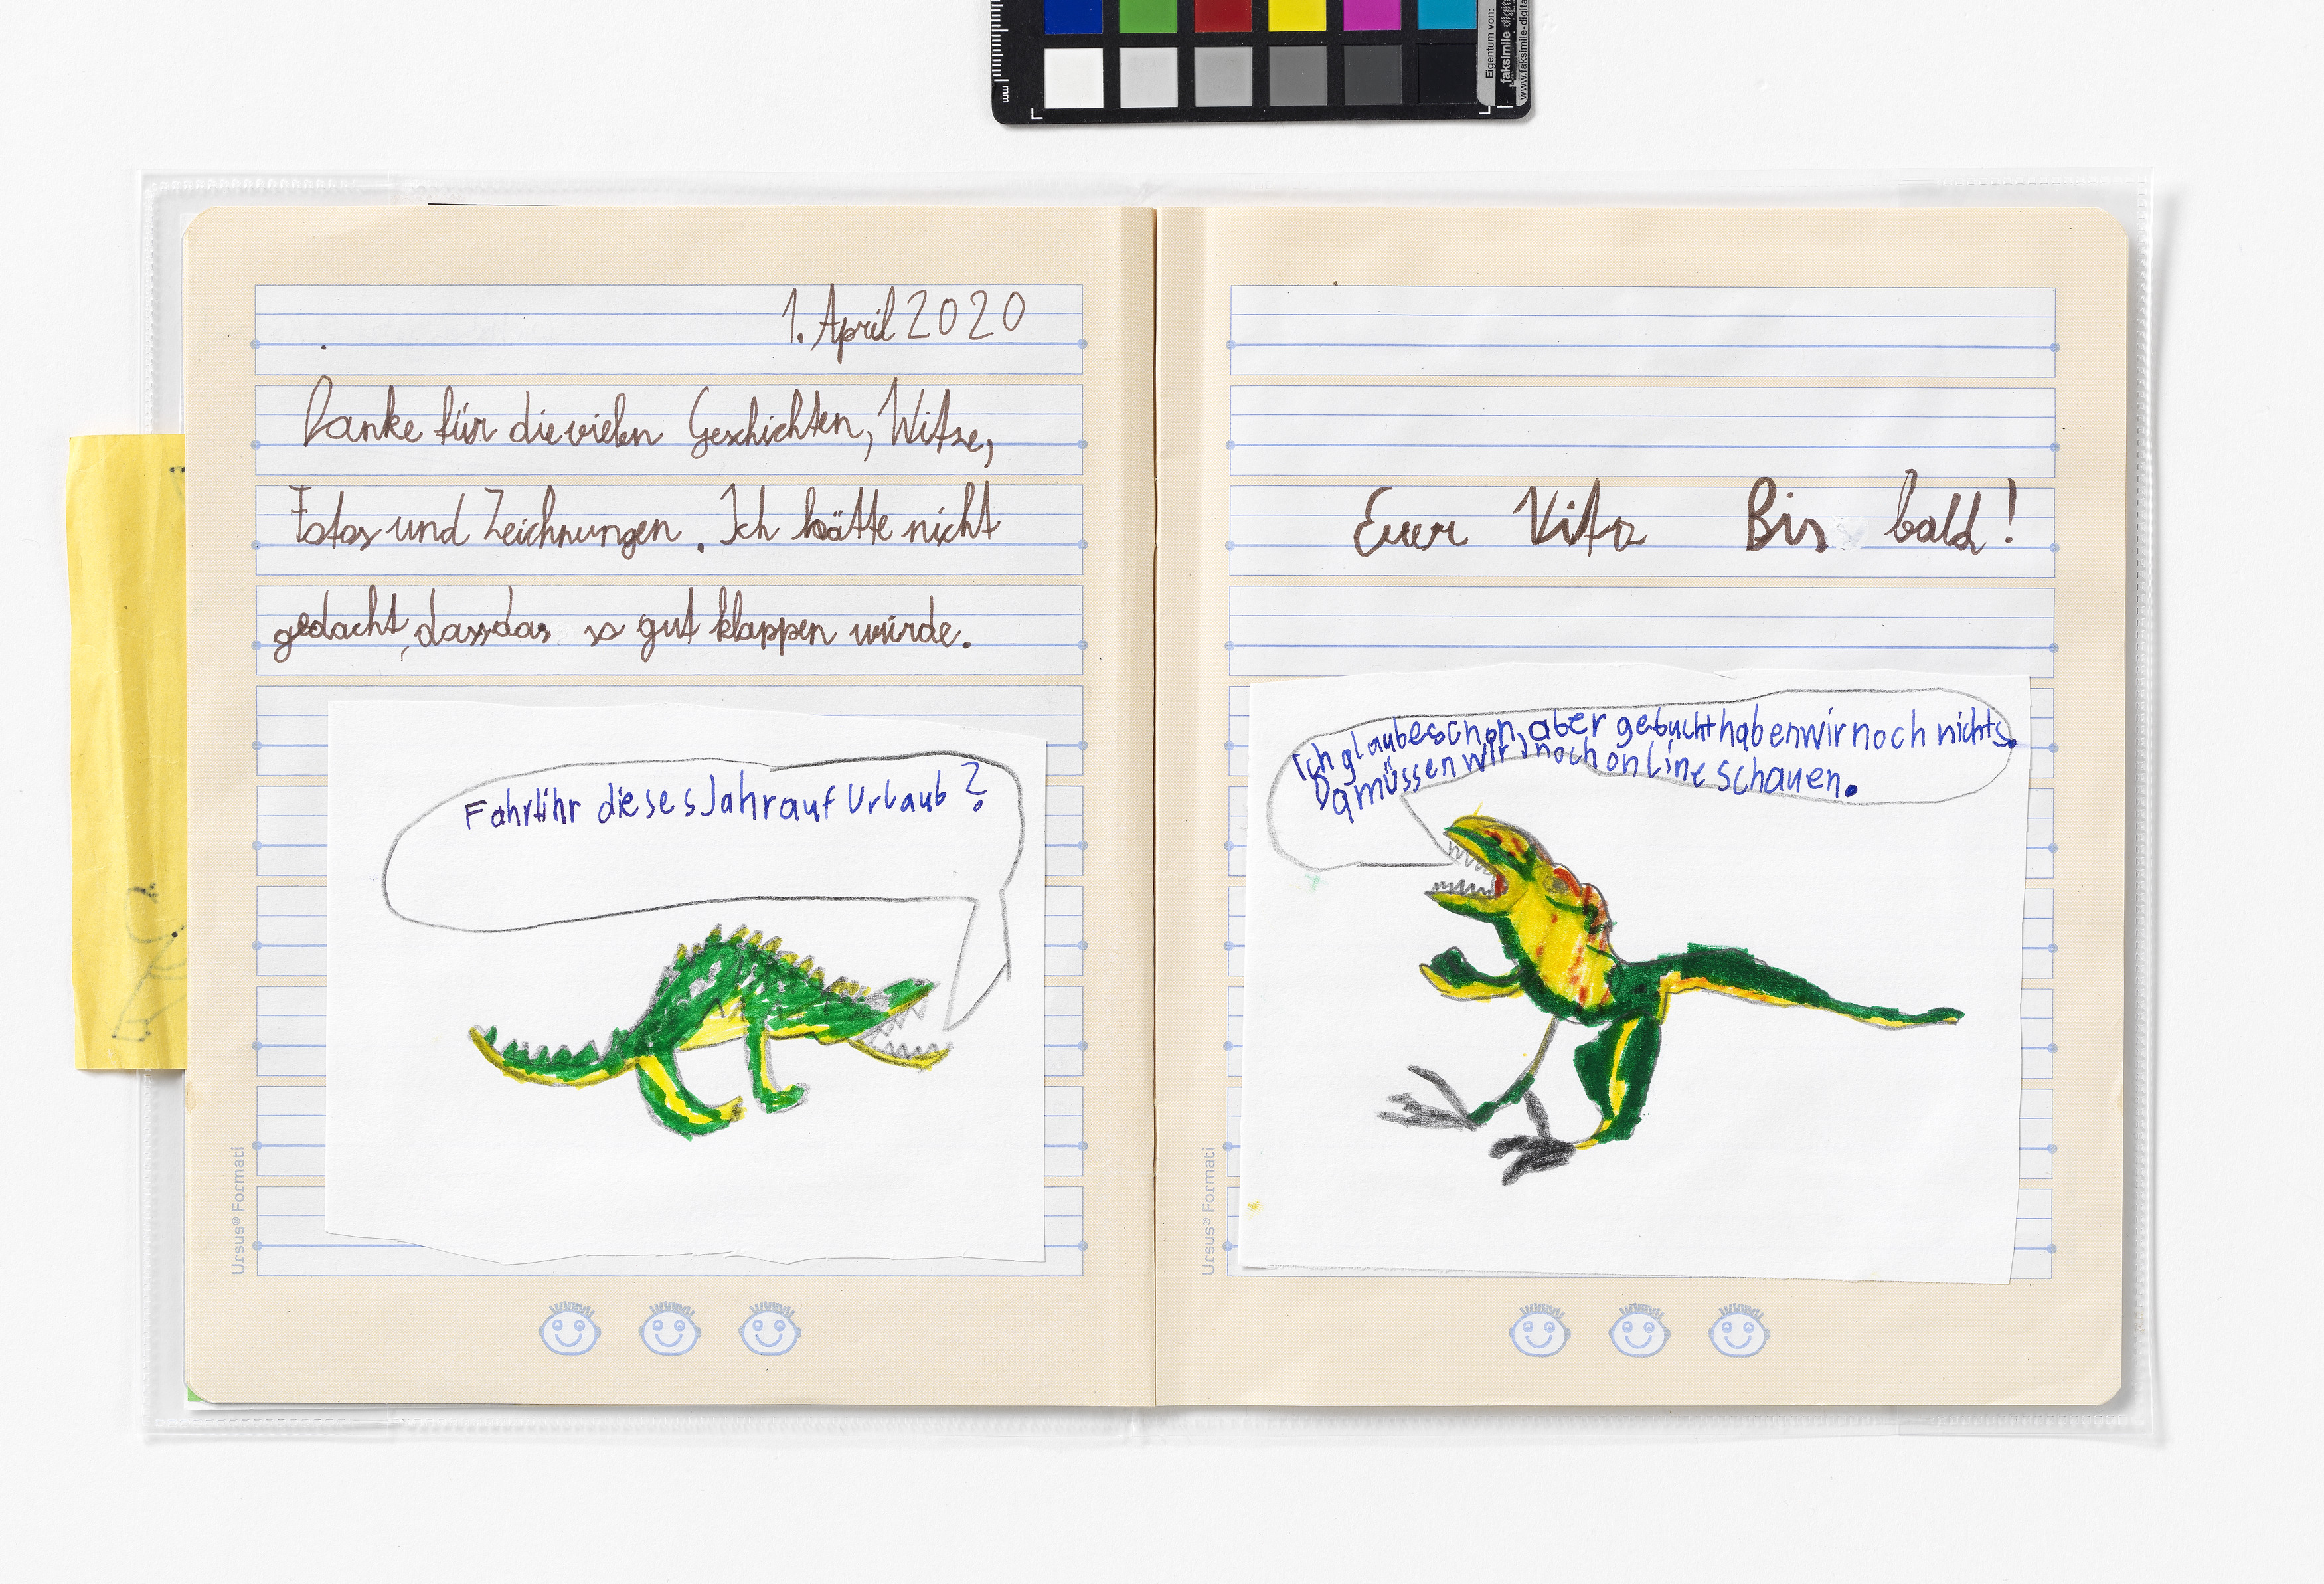 Eigentum von:
faksimile digita
www.faksimile-digita
mm
1. April 2020
Danke für die vielen Geschichten, Witze,
Fotos und Zeichnungen. Ich hätte nicht
gedacht, dass das so gut klappen würde.
Fahrt ihr dieses Jahr auf Urlaub?
Ursus® Formati
Euer Vito Bis bald!
Ich glaube schon, aber gebucht haben wir noch nichts.
Da müssen wir noch online schauen.
Ursus® Formati